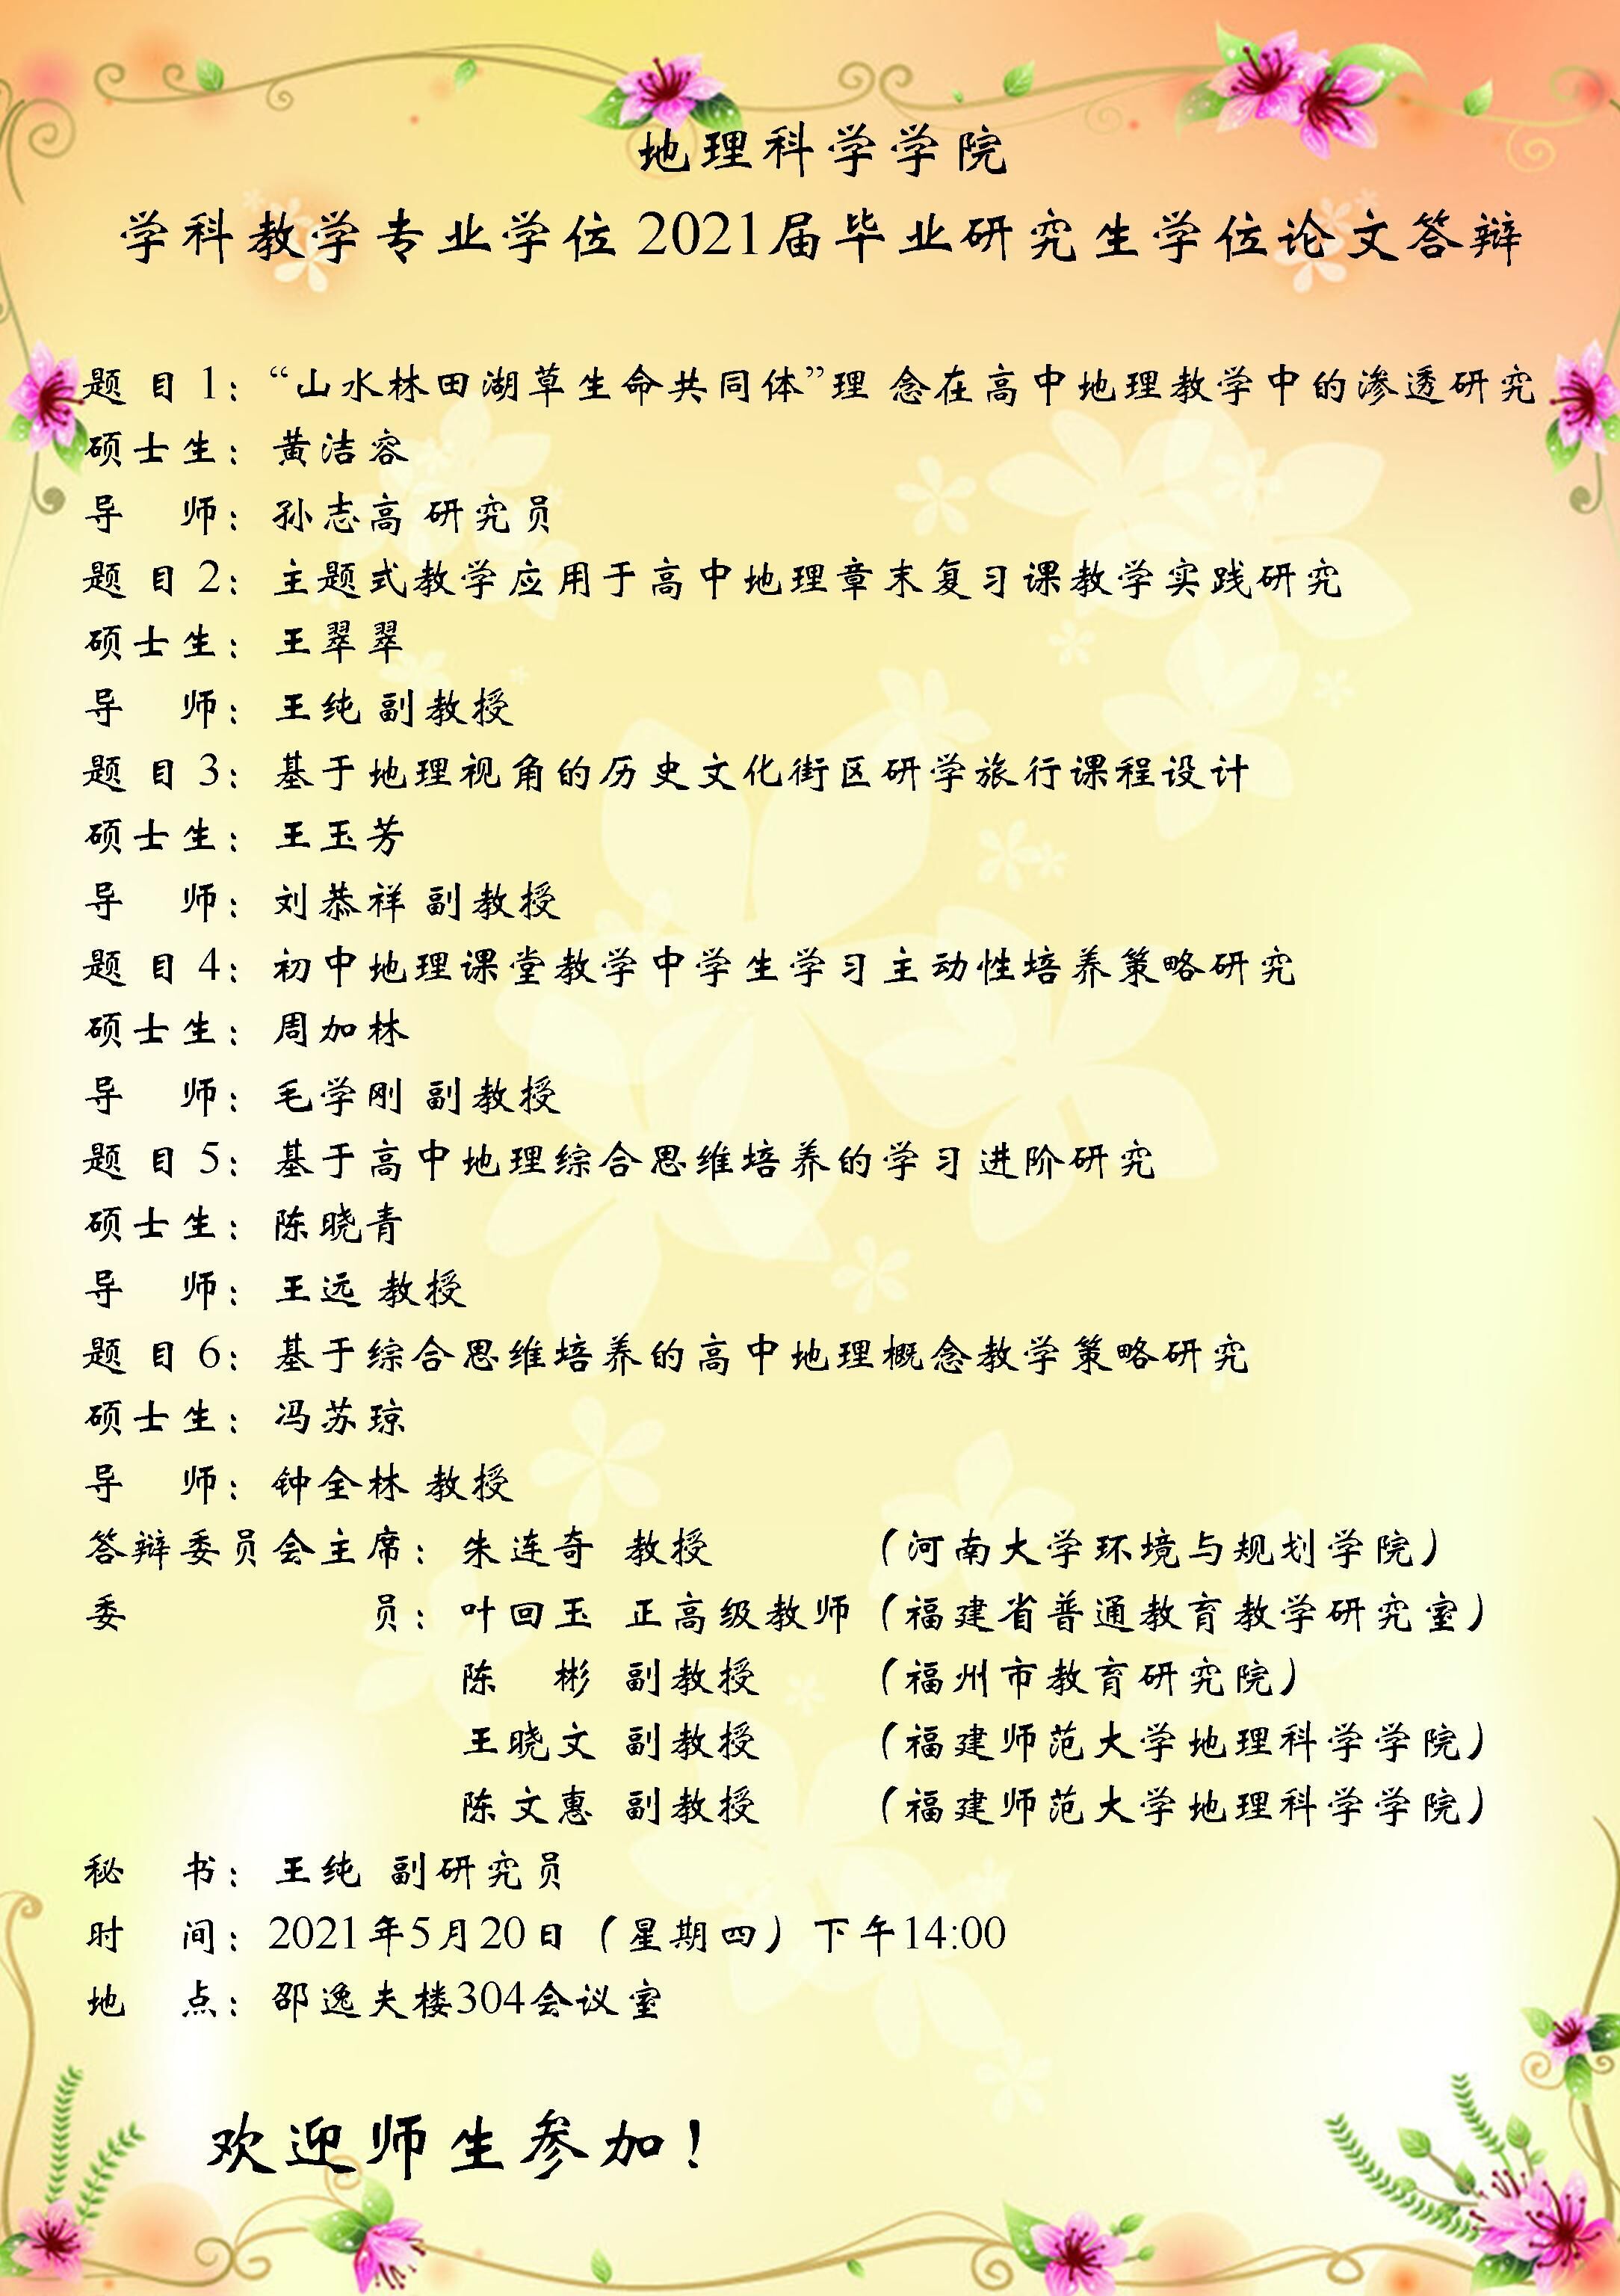 地理科学学院
学科教学专业学位2021届毕业研究生学位论文答辩
题目1：“山水林田湖草生命共同体”理念在高中地理教学中的渗透研究
硕士生：黄洁容
导师：孙志高 研究员
题目2：主题式教学应用于高中地理章末复习课教学实践研究
硕士生：王翠翠
导师：王纯 副教授
题目3：基于地理视角的历史文化街区研学旅行课程设计
硕士生：王玉芳
导师：刘恭祥 副教授
题目4：初中地理课堂教学中学生学习主动性培养策略研究
硕士生：周加林
导师：毛学刚 副教授
题目5：基于高中地理综合思维培养的学习进阶研究
硕士生：陈晓青
导师：王远 教授
题目6：基于综合思维培养的高中地理概念教学策略研究
硕士生：冯苏琼
导师：钟全林 教授
答辩委员会主席：朱连奇 教授 （河南大学环境与规划学院）
委员：叶回玉 正高级教师（福建省普通教育教学研究室）
陈彬 副教授 （福州市教育研究院）
王晓文 副教授 （福建师范大学地理科学学院）
陈文惠 副教授 （福建师范大学地理科学学院）
秘书：王纯 副研究员
时间：2021年5月20日（星期四）下午14:00
地点：邵逸夫楼304会议室
欢迎师生参加！